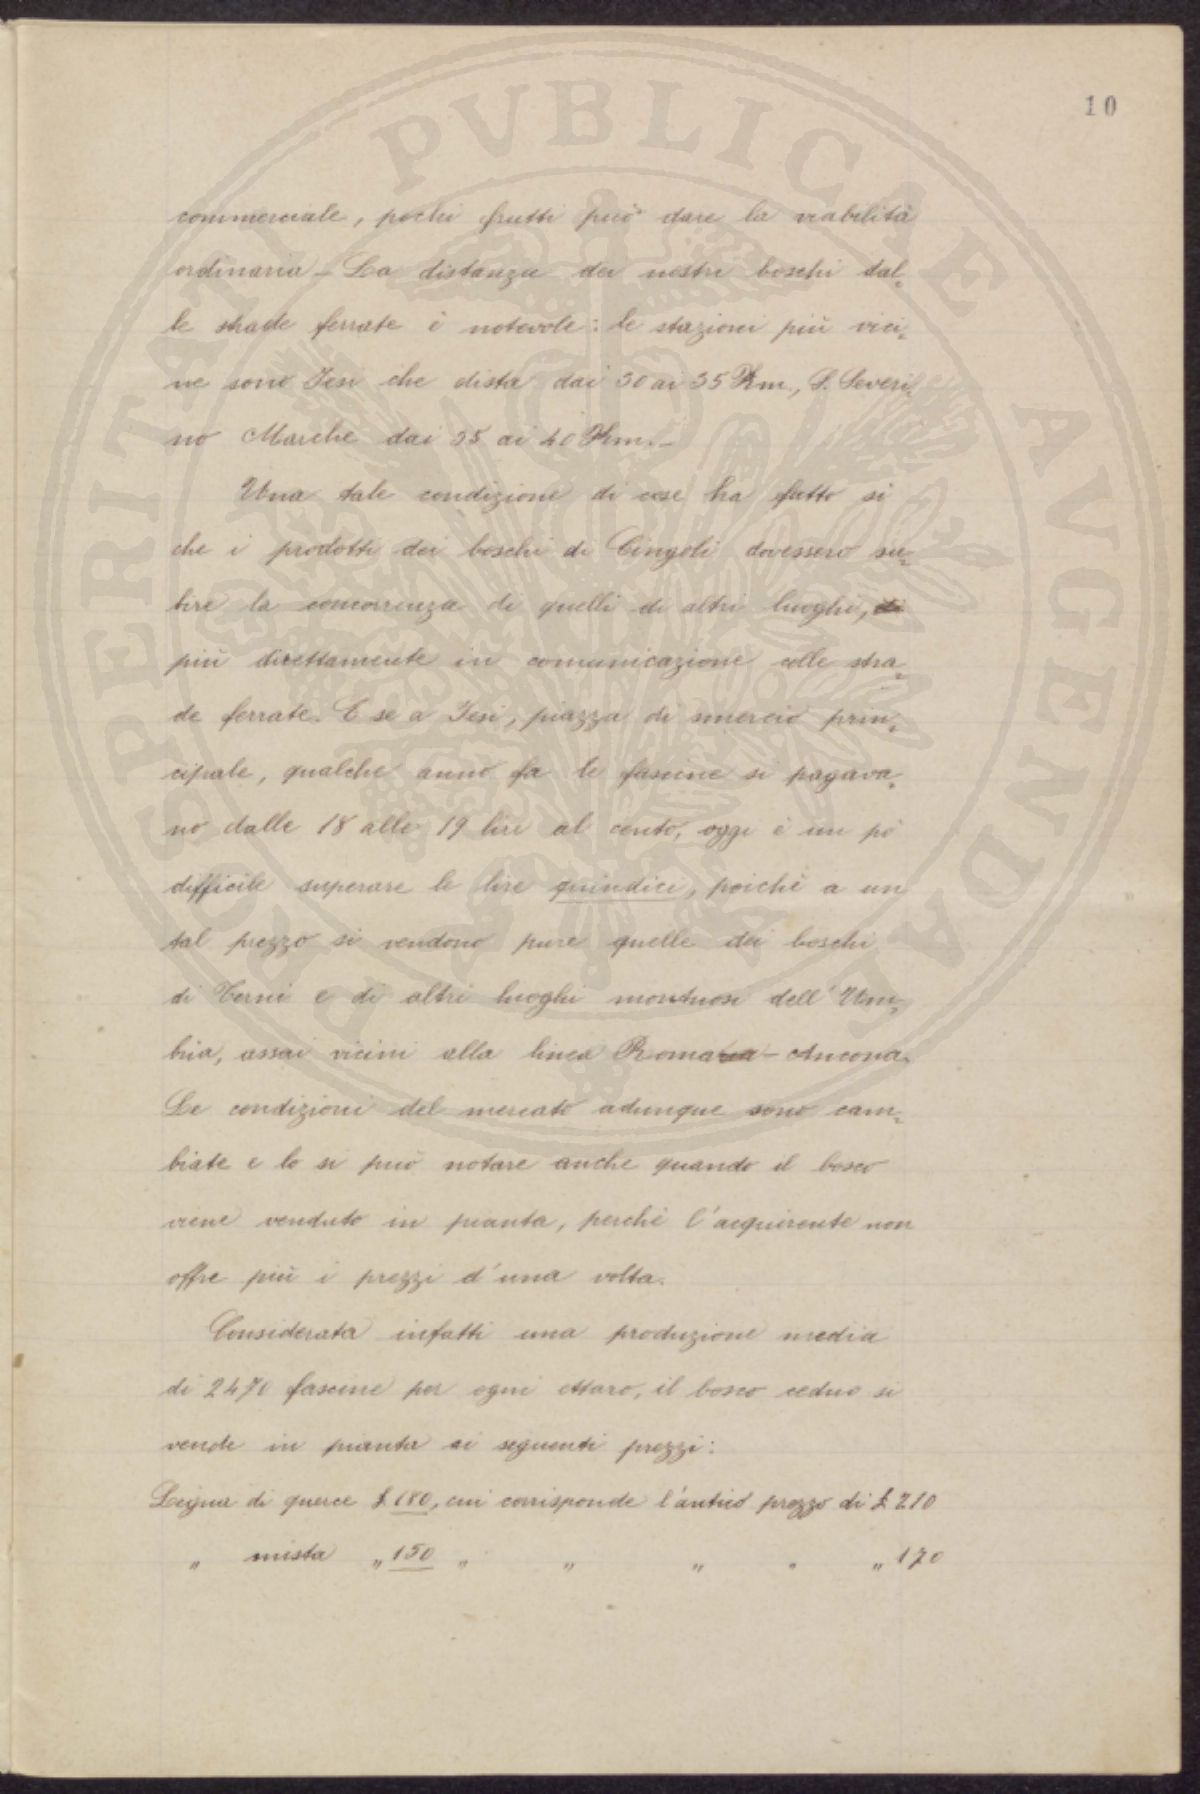 10
commerciale, pochi frutti può dare la viabilità
ordinaria - La distanza dei nostri boschi dal-
le strade ferrate è notevole: le stazioni più vici-
ne sono Jesi che dista dai 30 ai 35 Km., S. Severi-
no Marche dai 35 ai 40 Km. -
Una tale condizione di cose ha fatto sì
che i prodotti dei boschi di Cingoli dovessero su-
bire la concorrenza di quelli di altri luoghi, di
più direttamente in comunicazione colle stra-
de ferrate. E se a Jesi, piazza di smercio prin-
cipale, qualche anno fa le fascine si pagava-
no dalle 18 alle 19 lire al cento, oggi è un pò
difficile superare le lire quindici, poichè a un
tal prezzo si vendono pure quelle dei boschi
di Terni e di altri luoghi montuosi dell'Um-
bria, assai vicini alla linea Roma - Ancona.
Le condizioni del mercato adunque sono cam-
biate e lo si può notare anche quando il bosco
viene venduto in pianta, perchè l'acquirente non
offre più i prezzi d'una volta.
Considerata infatti una produzione media
di 2470 fascine per ogni ettaro, il bosco ceduo si
vende in pianta ai seguenti prezzi:
Legna di querce £ 180, cui corrisponde l'antico prezzo di £ 210
" mista " 150 " " " " " 170
PROSPERITATI PVBLICAE AVGENDAE